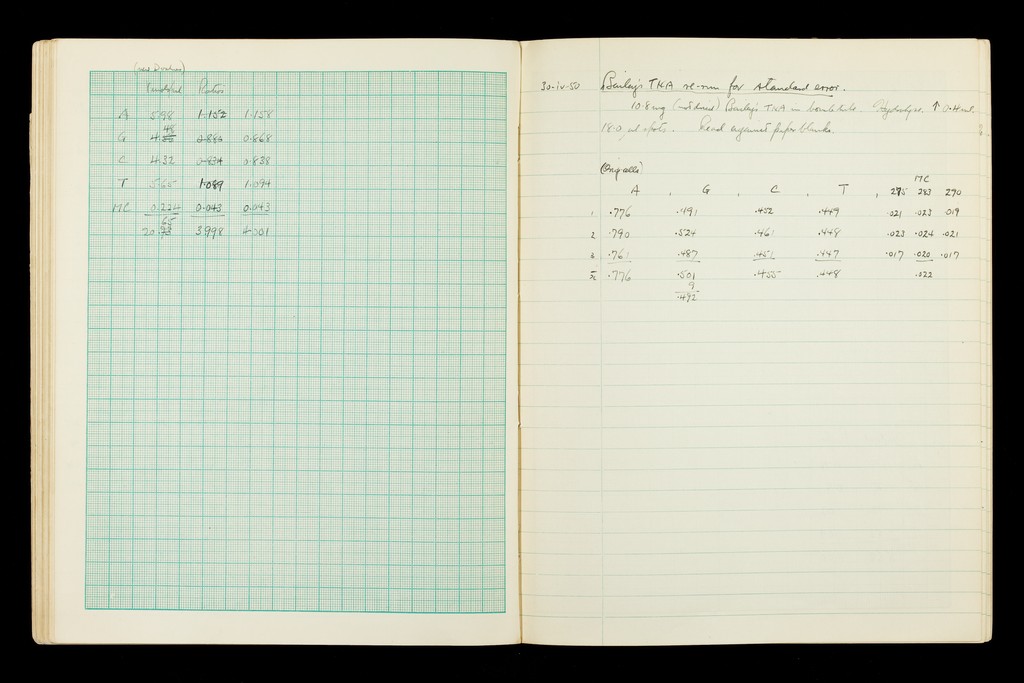 (new Dvalues)
Ratios
A 5.98 1.152 1.158
48
G 4.50 0.886 0.868
C 4.32 0.834 0.838
T 5.65 1.089 1.094
MC 0.224 0.043 0.043
65
20.93 3.998 4.001
30-iv-50 Bailey's TKA re-run for standard error.
10.8 mg Bailey's TKA in bomb tube. Hydrolyse. ↑ 0.4 ml.
18.0 µl spots. Read against paper blanks.
(Orig. cells)
MC
A , G , C , T , 275 283 290
1 .776 .491 .452 .449 .021 .023 .019
2 .790 .524 .461 .448 .023 .024 .021
3 .761 .487 .451 .447 .017 .020 .017
x̄ .776 .501 .455 .448 .022
9
.492